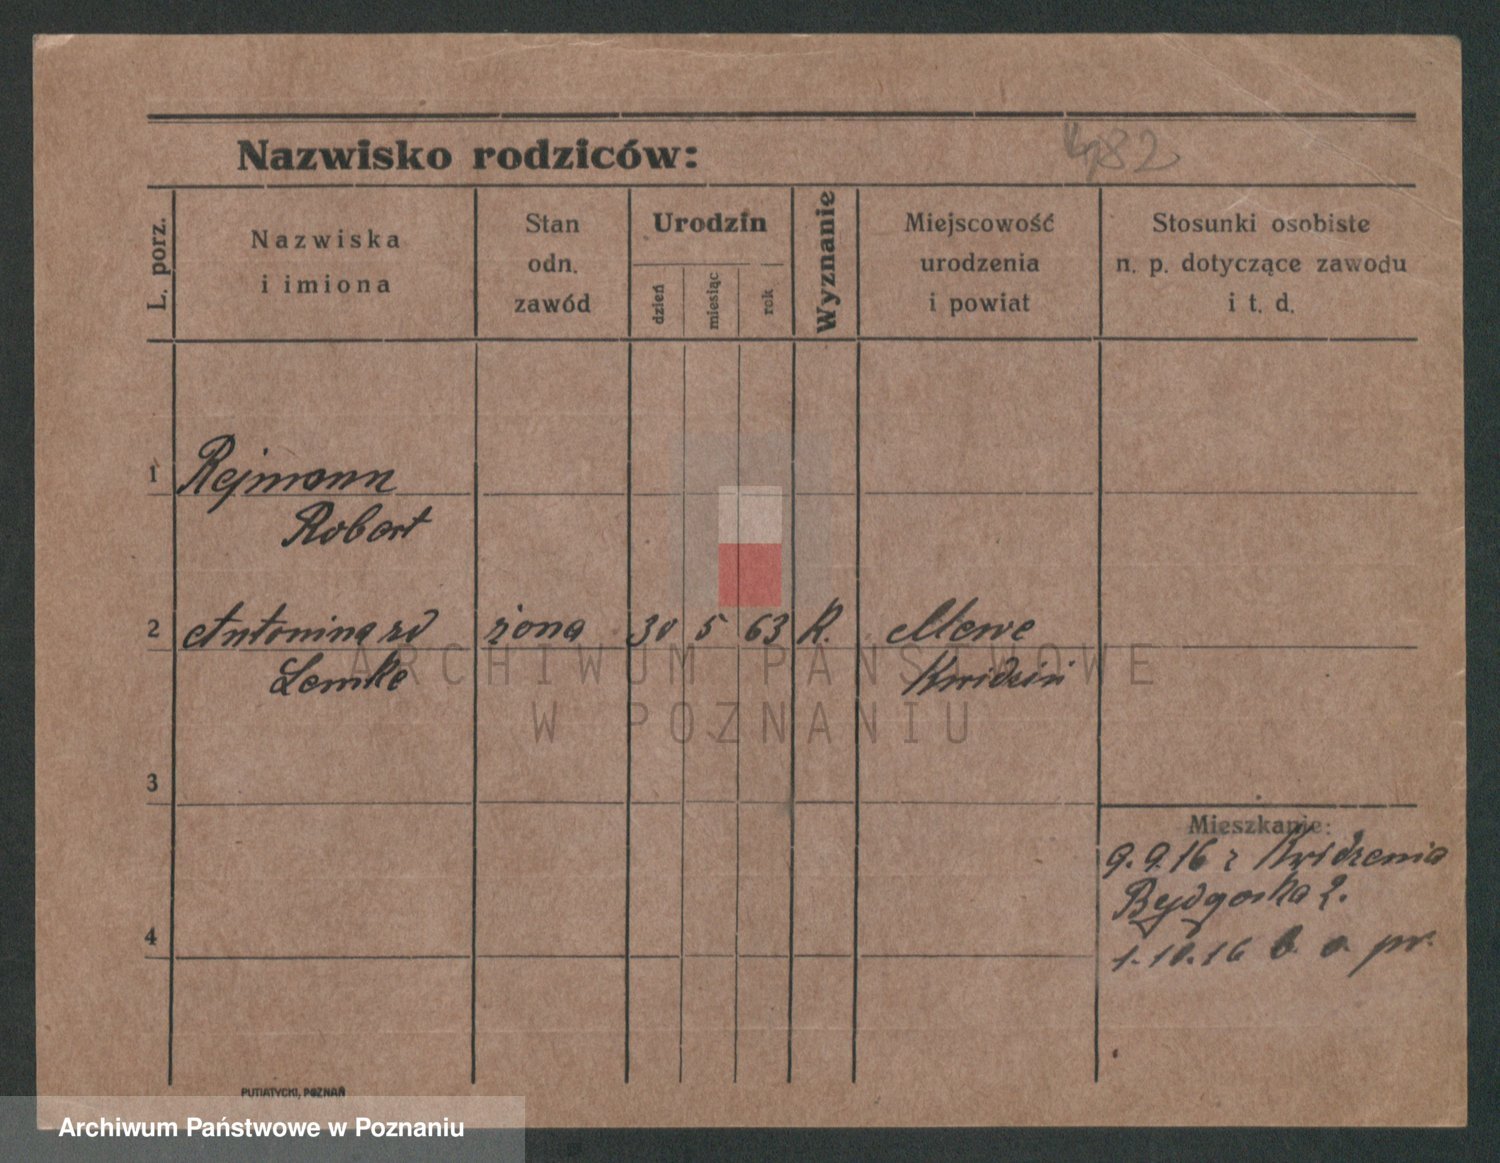 482
Nazwisko rodziców:
L. porz.
Nazwiska
i imiona
Stan
odn.
zawód
Urodzin
dzień
miesiąc
rok
Wyznanie
Miejscowość
urodzenia
i powiat
Stosunki osobiste
n. p. dotyczące zawodu
i t. d.
1 Rejmann
Robert
2 Antonina zd żona 30 5 63 R. Mewe
Lemke Kwidzin
3
4
Mieszkanie:
9.9.16 z Kwidzenia
Bydgoska 2.
1.10.16 b. o. pr.
PUTIATYCKI, POZNAŃ
ARCHIWUM PAŃSTWOWE
W POZNANIU
Archiwum Państwowe w Poznaniu